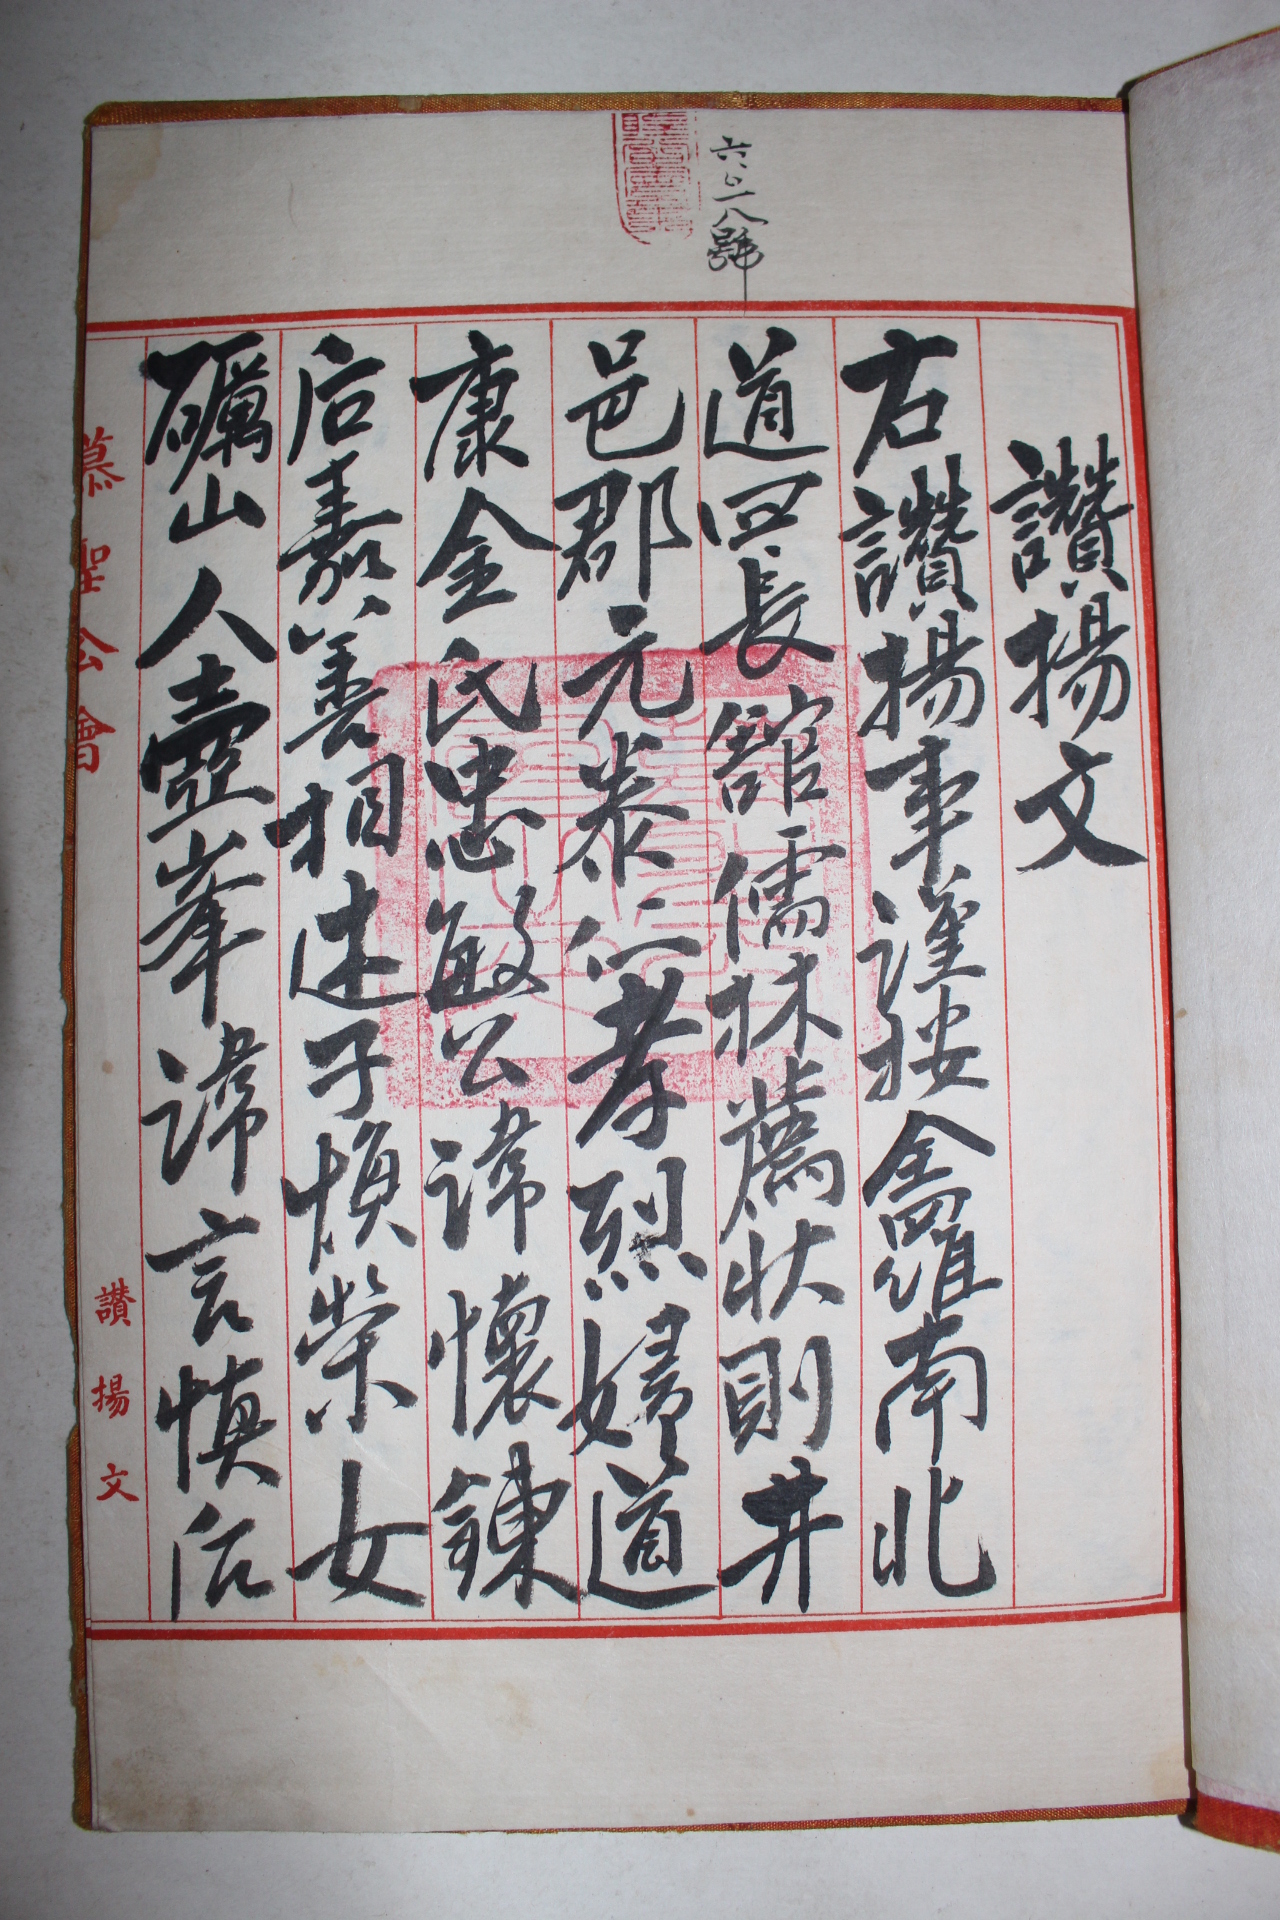 六
八號
讃揚文
右讃揚事謹按全羅南北
道四長舘儒林薦狀則井
邑郡元泰仁孝烈婦道
康金氏忠敏公諱懷鍊
后嘉善相述子煥榮女
礪山人壺峯諱言慎后
慕聖公會
讃揚文